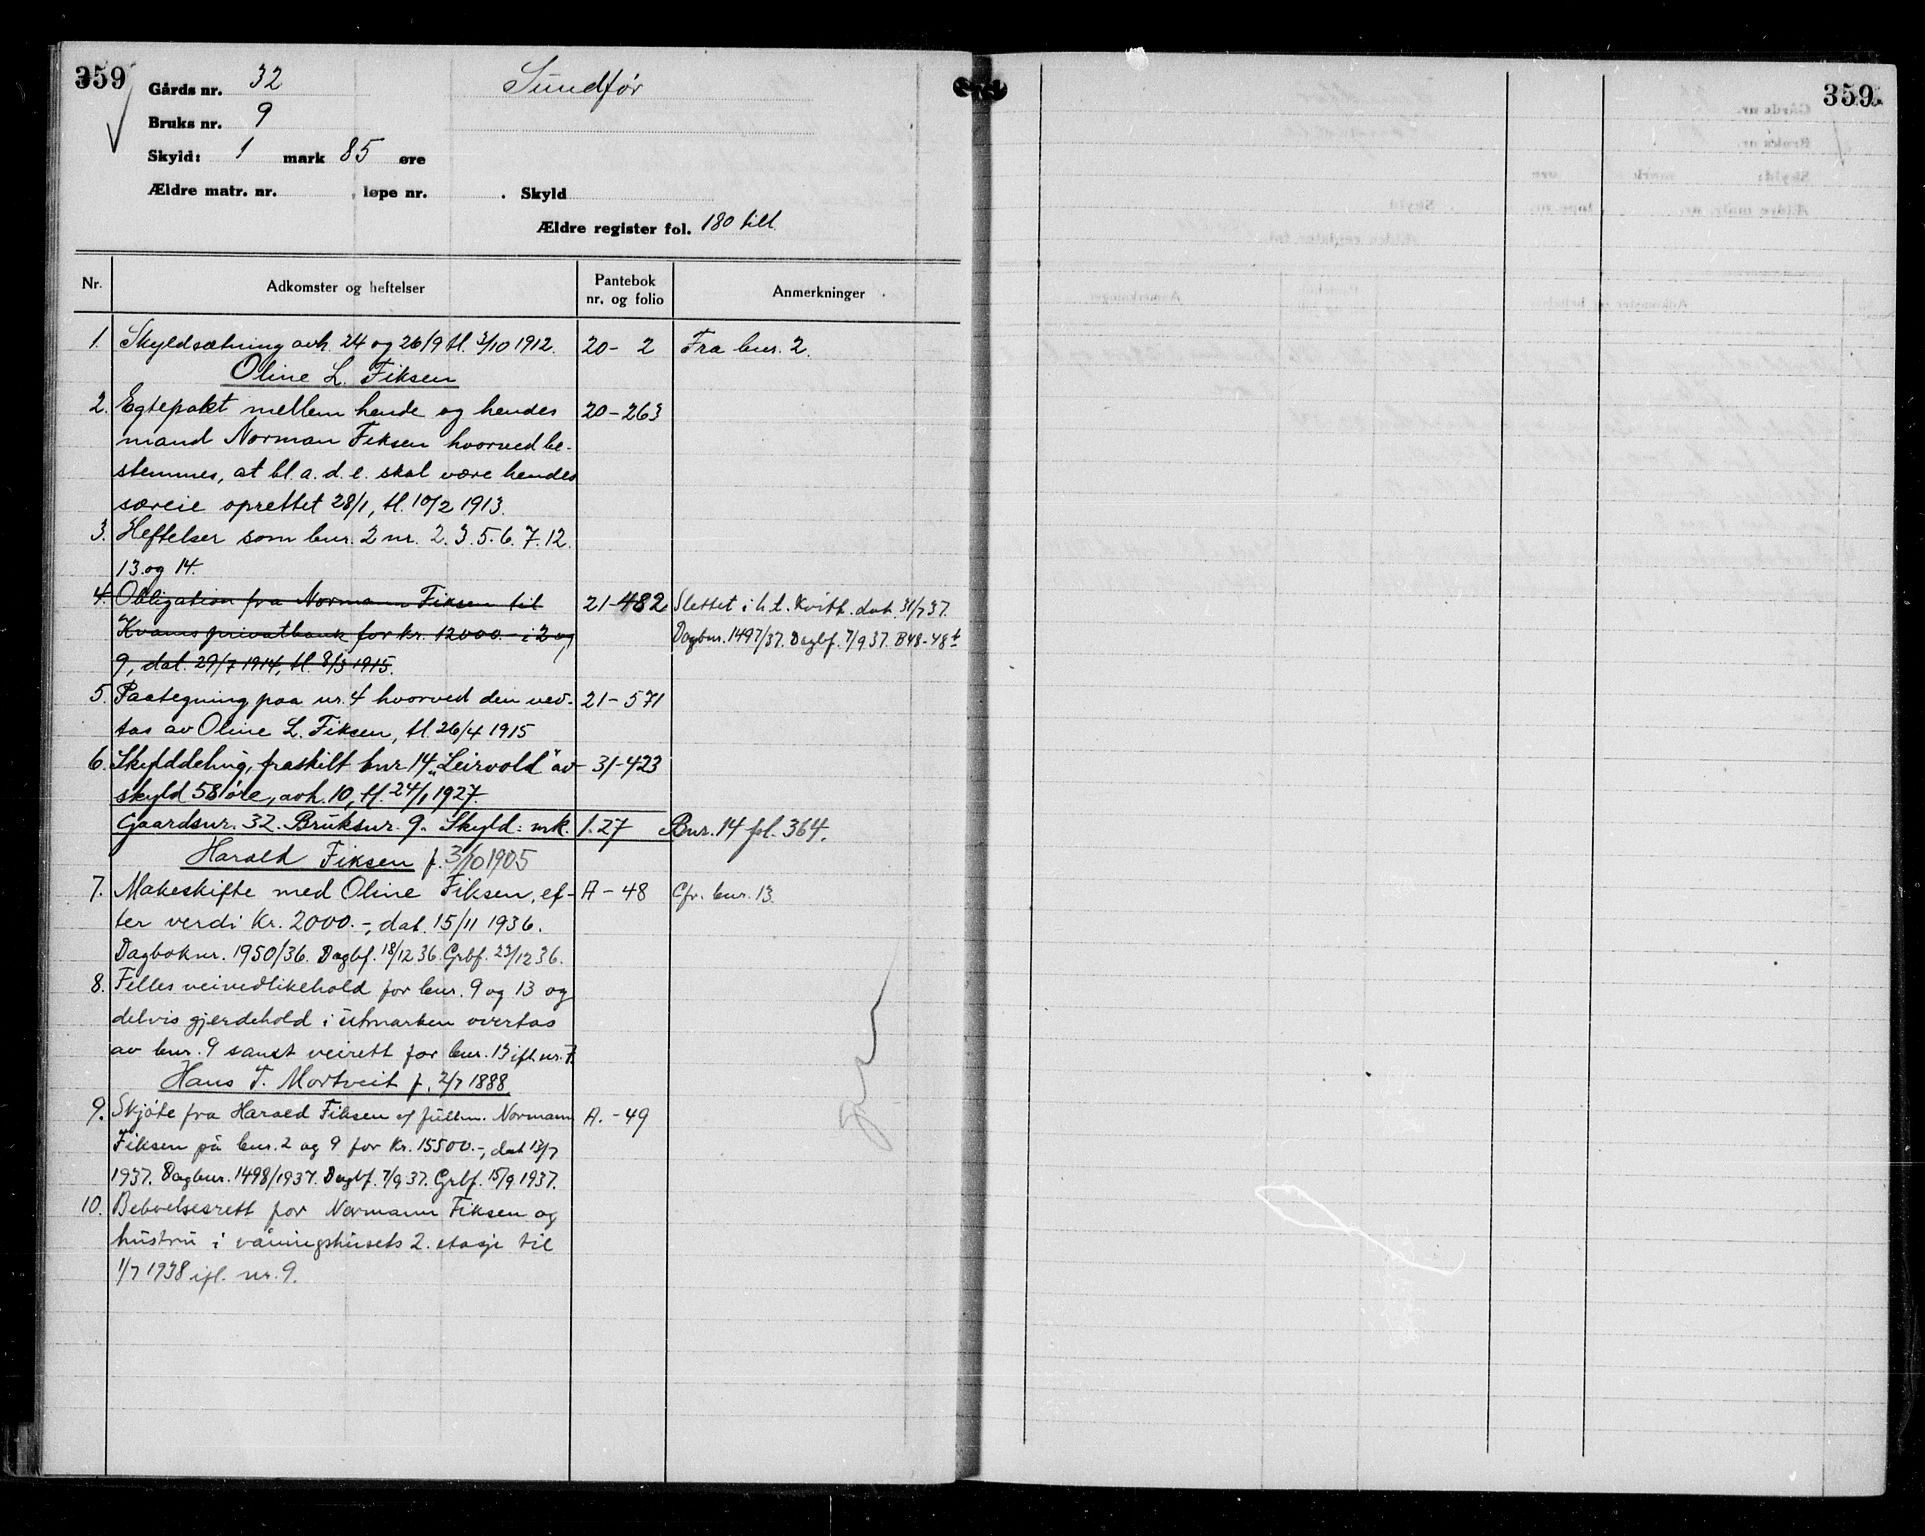 359
Gårds nr. 32 Sundfør
Bruks nr. 9
Skyld: 1 mark 85 øre
Ældre matr. nr. , løpe nr. . Skyld
Ældre register fol. 180 till
Nr. Adkomster og heftelser Pantebok nr. og folio Anmerkninger
1. Skyldsætning avh. 24 og 26/9 tl. 3/10 1912. 20 - 2 Fra bnr. 2.
Oline L. Fiksen
2. Egtepakt mellem hende og hendes 20 - 263
mand Norman Fiksen hvorved be-
stemmes, at bl. a. d. e. skal være hendes
særeie oprettet 28/1, tl. 10/2 1913.
3. Heftelser som bnr. 2 nr. 2. 3. 5. 6. 7. 12.
13. og 14.
4. Obligation fra Normann Fiksen til 21 - 482 Slettet i h.t. kvitt. dat. 31/7 37.
Kvams privatbank for kr. 12000.- i 2 og Dagbnr. 1497/37. Dagbf. 7/9 37. B48-48t
9, dat. 29/7 1914, tl. 8/3 1915.
5. Paategning paa nr. 4 hvorved den ved- 21 - 571
tas av Oline L. Fiksen, tl. 26/4 1915
6. Skylddeling, fraskilt bnr. 14 „Leirvold" av 31-423
skyld 58 øre, avh. 10, tl. 24/1 1927.
Gaardsnr. 32. Bruksnr. 9. Skyld: mk. 1.27 Bnr. 14 fol. 364.
Harald Fiksen f. 3/10 1905
7. Makeskifte med Oline Fiksen, ef- A - 48 Cfr. bnr. 13.
ter verdi kr. 2000.-, dat. 15/11 1936.
Dagboknr. 1950/36. Dagbf. 18/12 36. Grbf. 23/12 36.
8. Felles veivedlikehold for bnr. 9 og 13 og
delvis gjerdehold i utmarken overtas
av bnr. 9 samt veirett for bnr. 13 ifl. nr. 7.
Hans T. Mortveit f. 2/7 1888
9. Skjøte fra Harald Fiksen e/ fullm. Normann A. - 49
Fiksen på bnr. 2 og 9 for kr. 15500.-, dat 13/7
1937. Dagbnr. 1498/1937. Dagbf. 7/9 37. Grbf. 15/9 1937.
10. Beboelsesrett for Normann Fiksen og
hustru i våningshusets 2. etasje til
1/7 1938 ifl. nr. 9.
359.